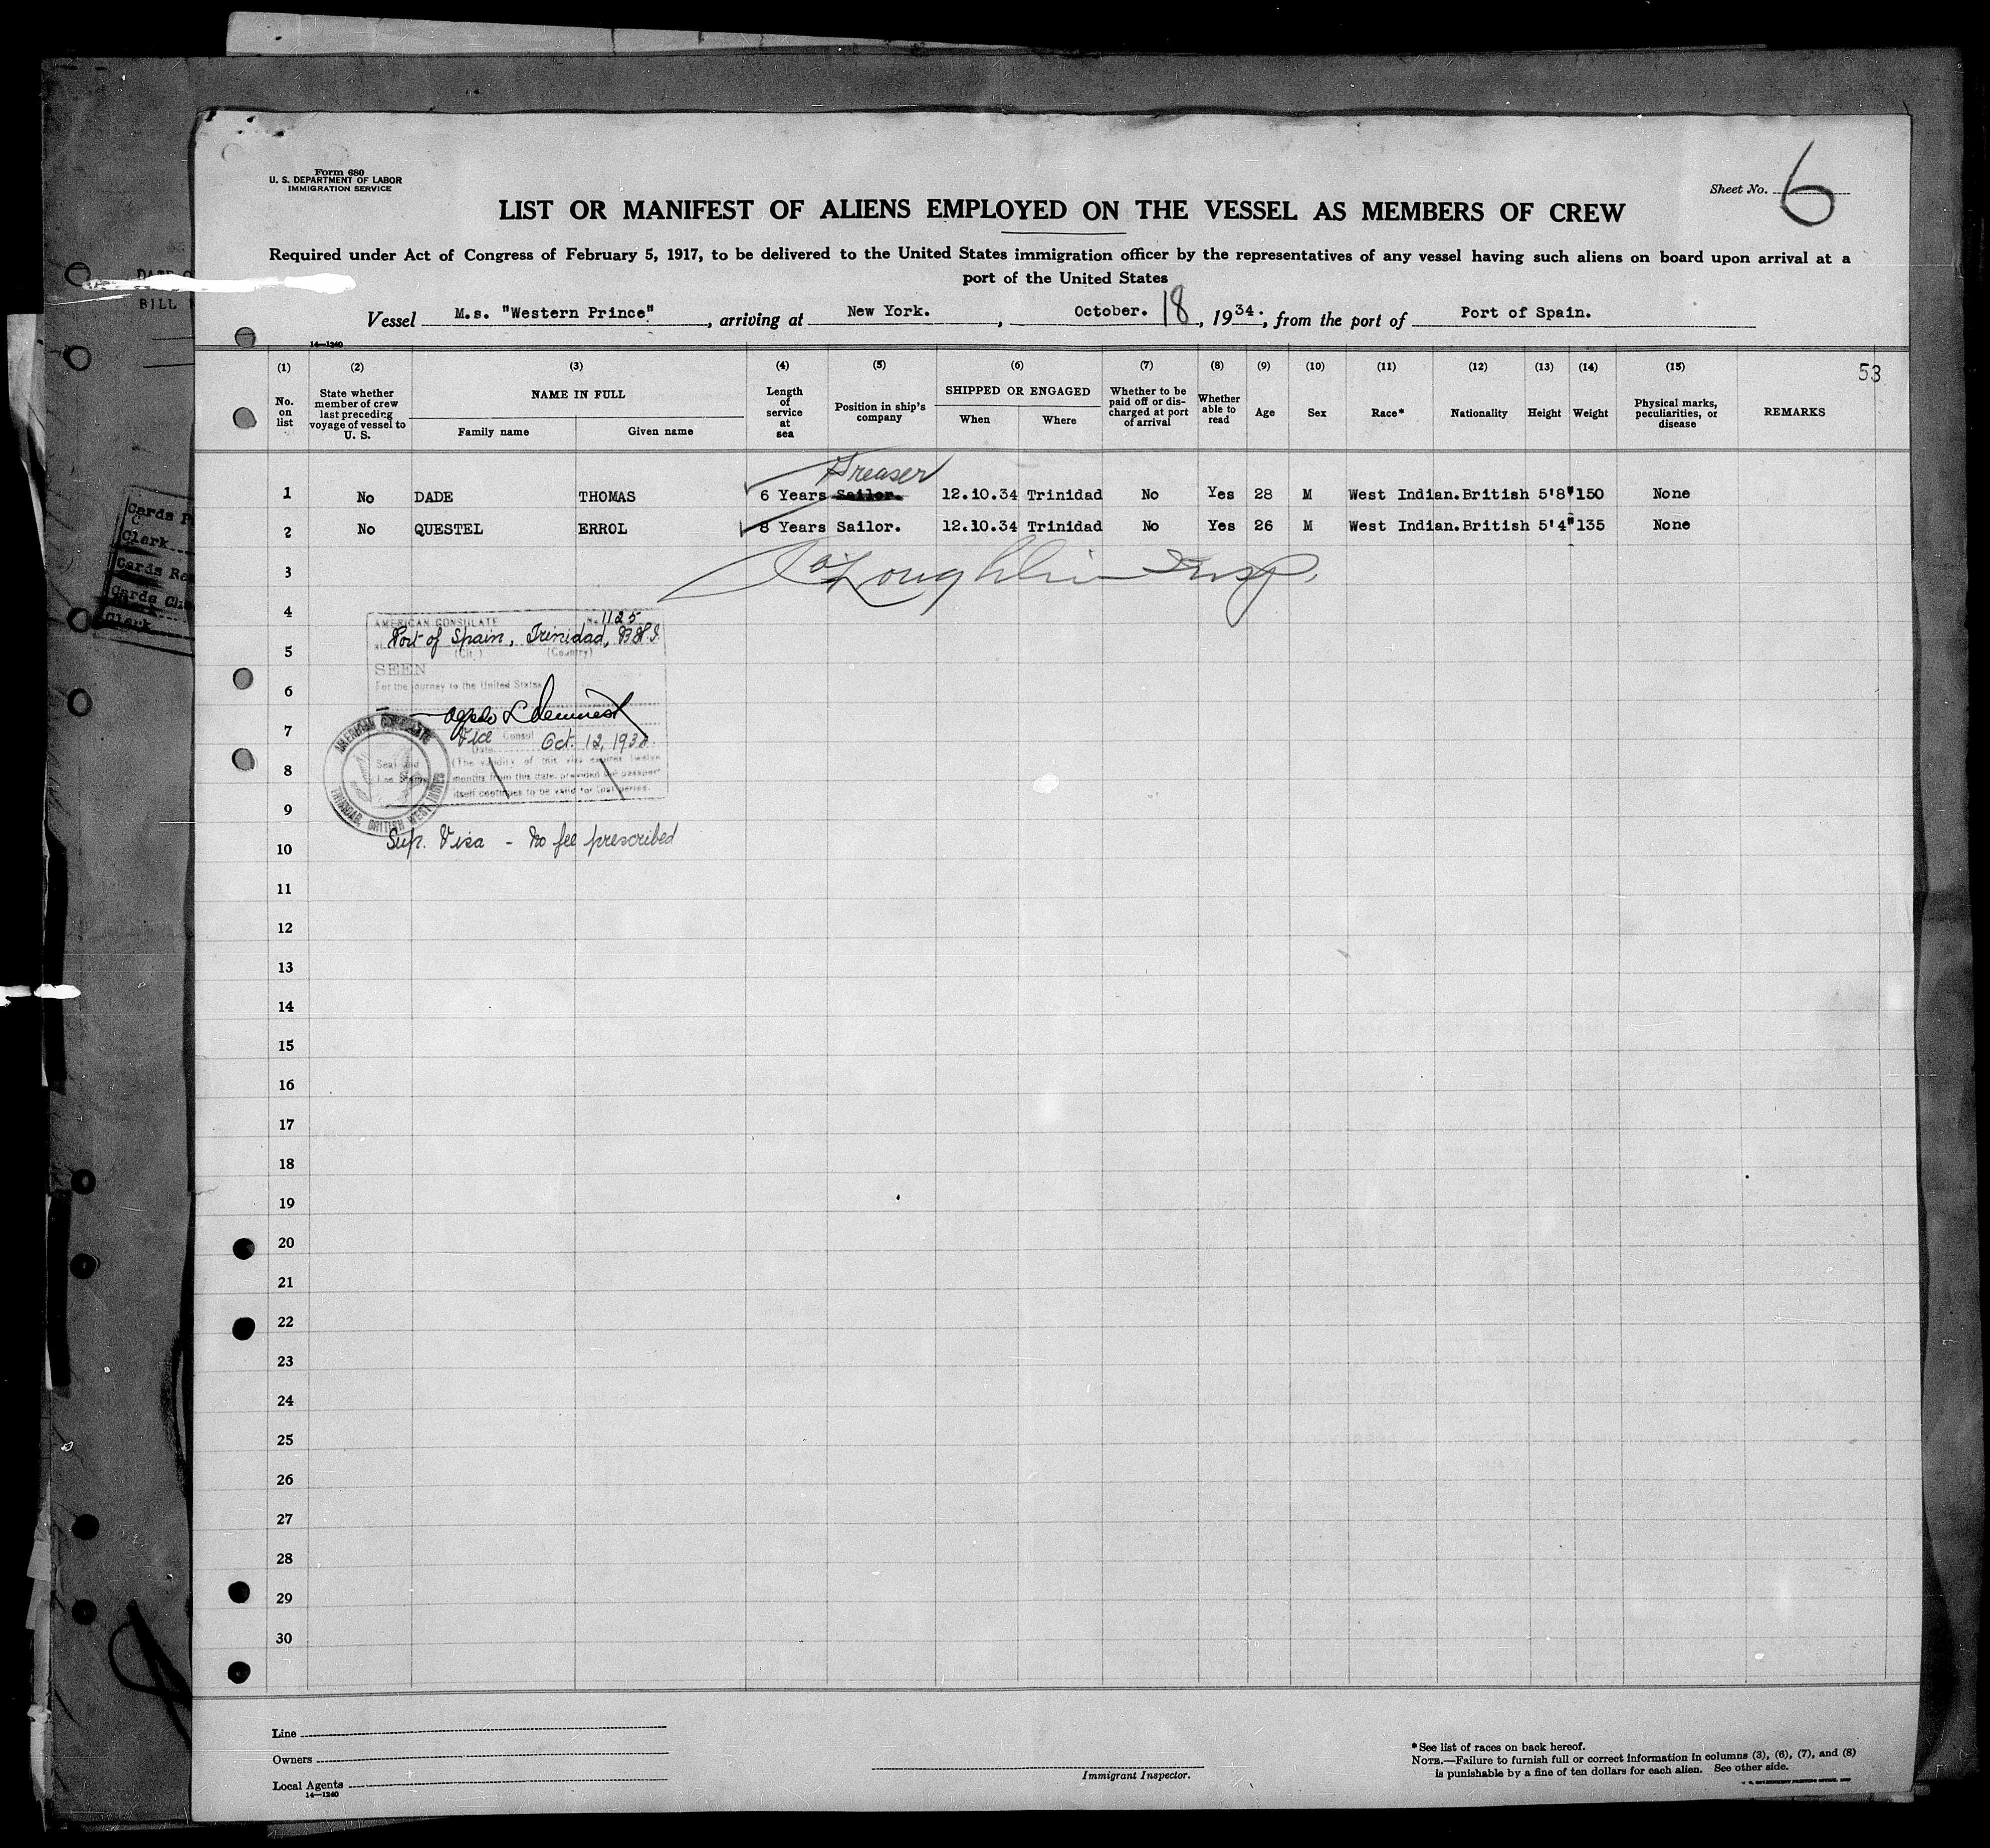 Form 680
U. S. DEPARTMENT OF LABOR
IMMIGRATION SERVICE
Sheet No. 6
LIST OR MANIFEST OF ALIENS EMPLOYED ON THE VESSEL AS MEMBERS OF CREW
Required under Act of Congress of February 5, 1917, to be delivered to the United States immigration officer by the representatives of any vessel having such aliens on board upon arrival at a
port of the United States
Vessel M.s. "Western Prince", arriving at New York., October. 18, 1934., from the port of Port of Spain.
14—1240
(1) (2) (3) (4) (5) (6) (7) (8) (9) (10) (11) (12) (13) (14) (15) 53
No. on list
State whether member of crew last preceding voyage of vessel to U. S.
NAME IN FULL
Family name
Given name
Length of service at sea
Position in ship's company
SHIPPED OR ENGAGED
When
Where
Whether to be paid off or discharged at port of arrival
Whether able to read
Age
Sex
Race*
Nationality
Height
Weight
Physical marks, peculiarities, or disease
REMARKS
Greaser
1 No DADE THOMAS 6 Years Sailor. 12.10.34 Trinidad No Yes 28 M West Indian. British 5'8" 150 None
2 No QUESTEL ERROL 8 Years Sailor. 12.10.34 Trinidad No Yes 26 M West Indian. British 5'4" 135 None
3
O'Loughlin Insp.
4
AMERICAN CONSULATE No. 1125
Port of Spain, Trinidad, B.W.I.
(City) (Country)
5
SEEN
For the journey to the United States
6
7
Vice Consul Oct. 12, 1934
Date
(The validity of this visa expires twelve
months from this date, provided the passport
itself continues to be valid for that period.
Seal and
Fee Stamp
AMERICAN CONSULATE
TRINIDAD, BRITISH WEST INDIES
8
9
Sup. Visa - No fee prescribed
10
11
12
13
14
15
16
17
18
19
20
21
22
23
24
25
26
27
28
29
30
Line
Owners
Local Agents
14—1240
Immigrant Inspector.
*See list of races on back hereof.
NOTE.—Failure to furnish full or correct information in columns (3), (6), (7), and (8)
is punishable by a fine of ten dollars for each alien. See other side.
BILL
Cards
Clerk
Cards
Cards
Clerk